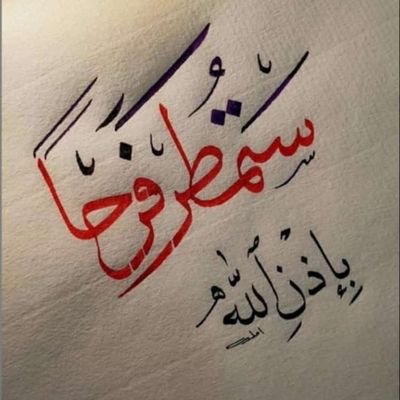 ستمطر فرحاً
بإذنِ اللّه